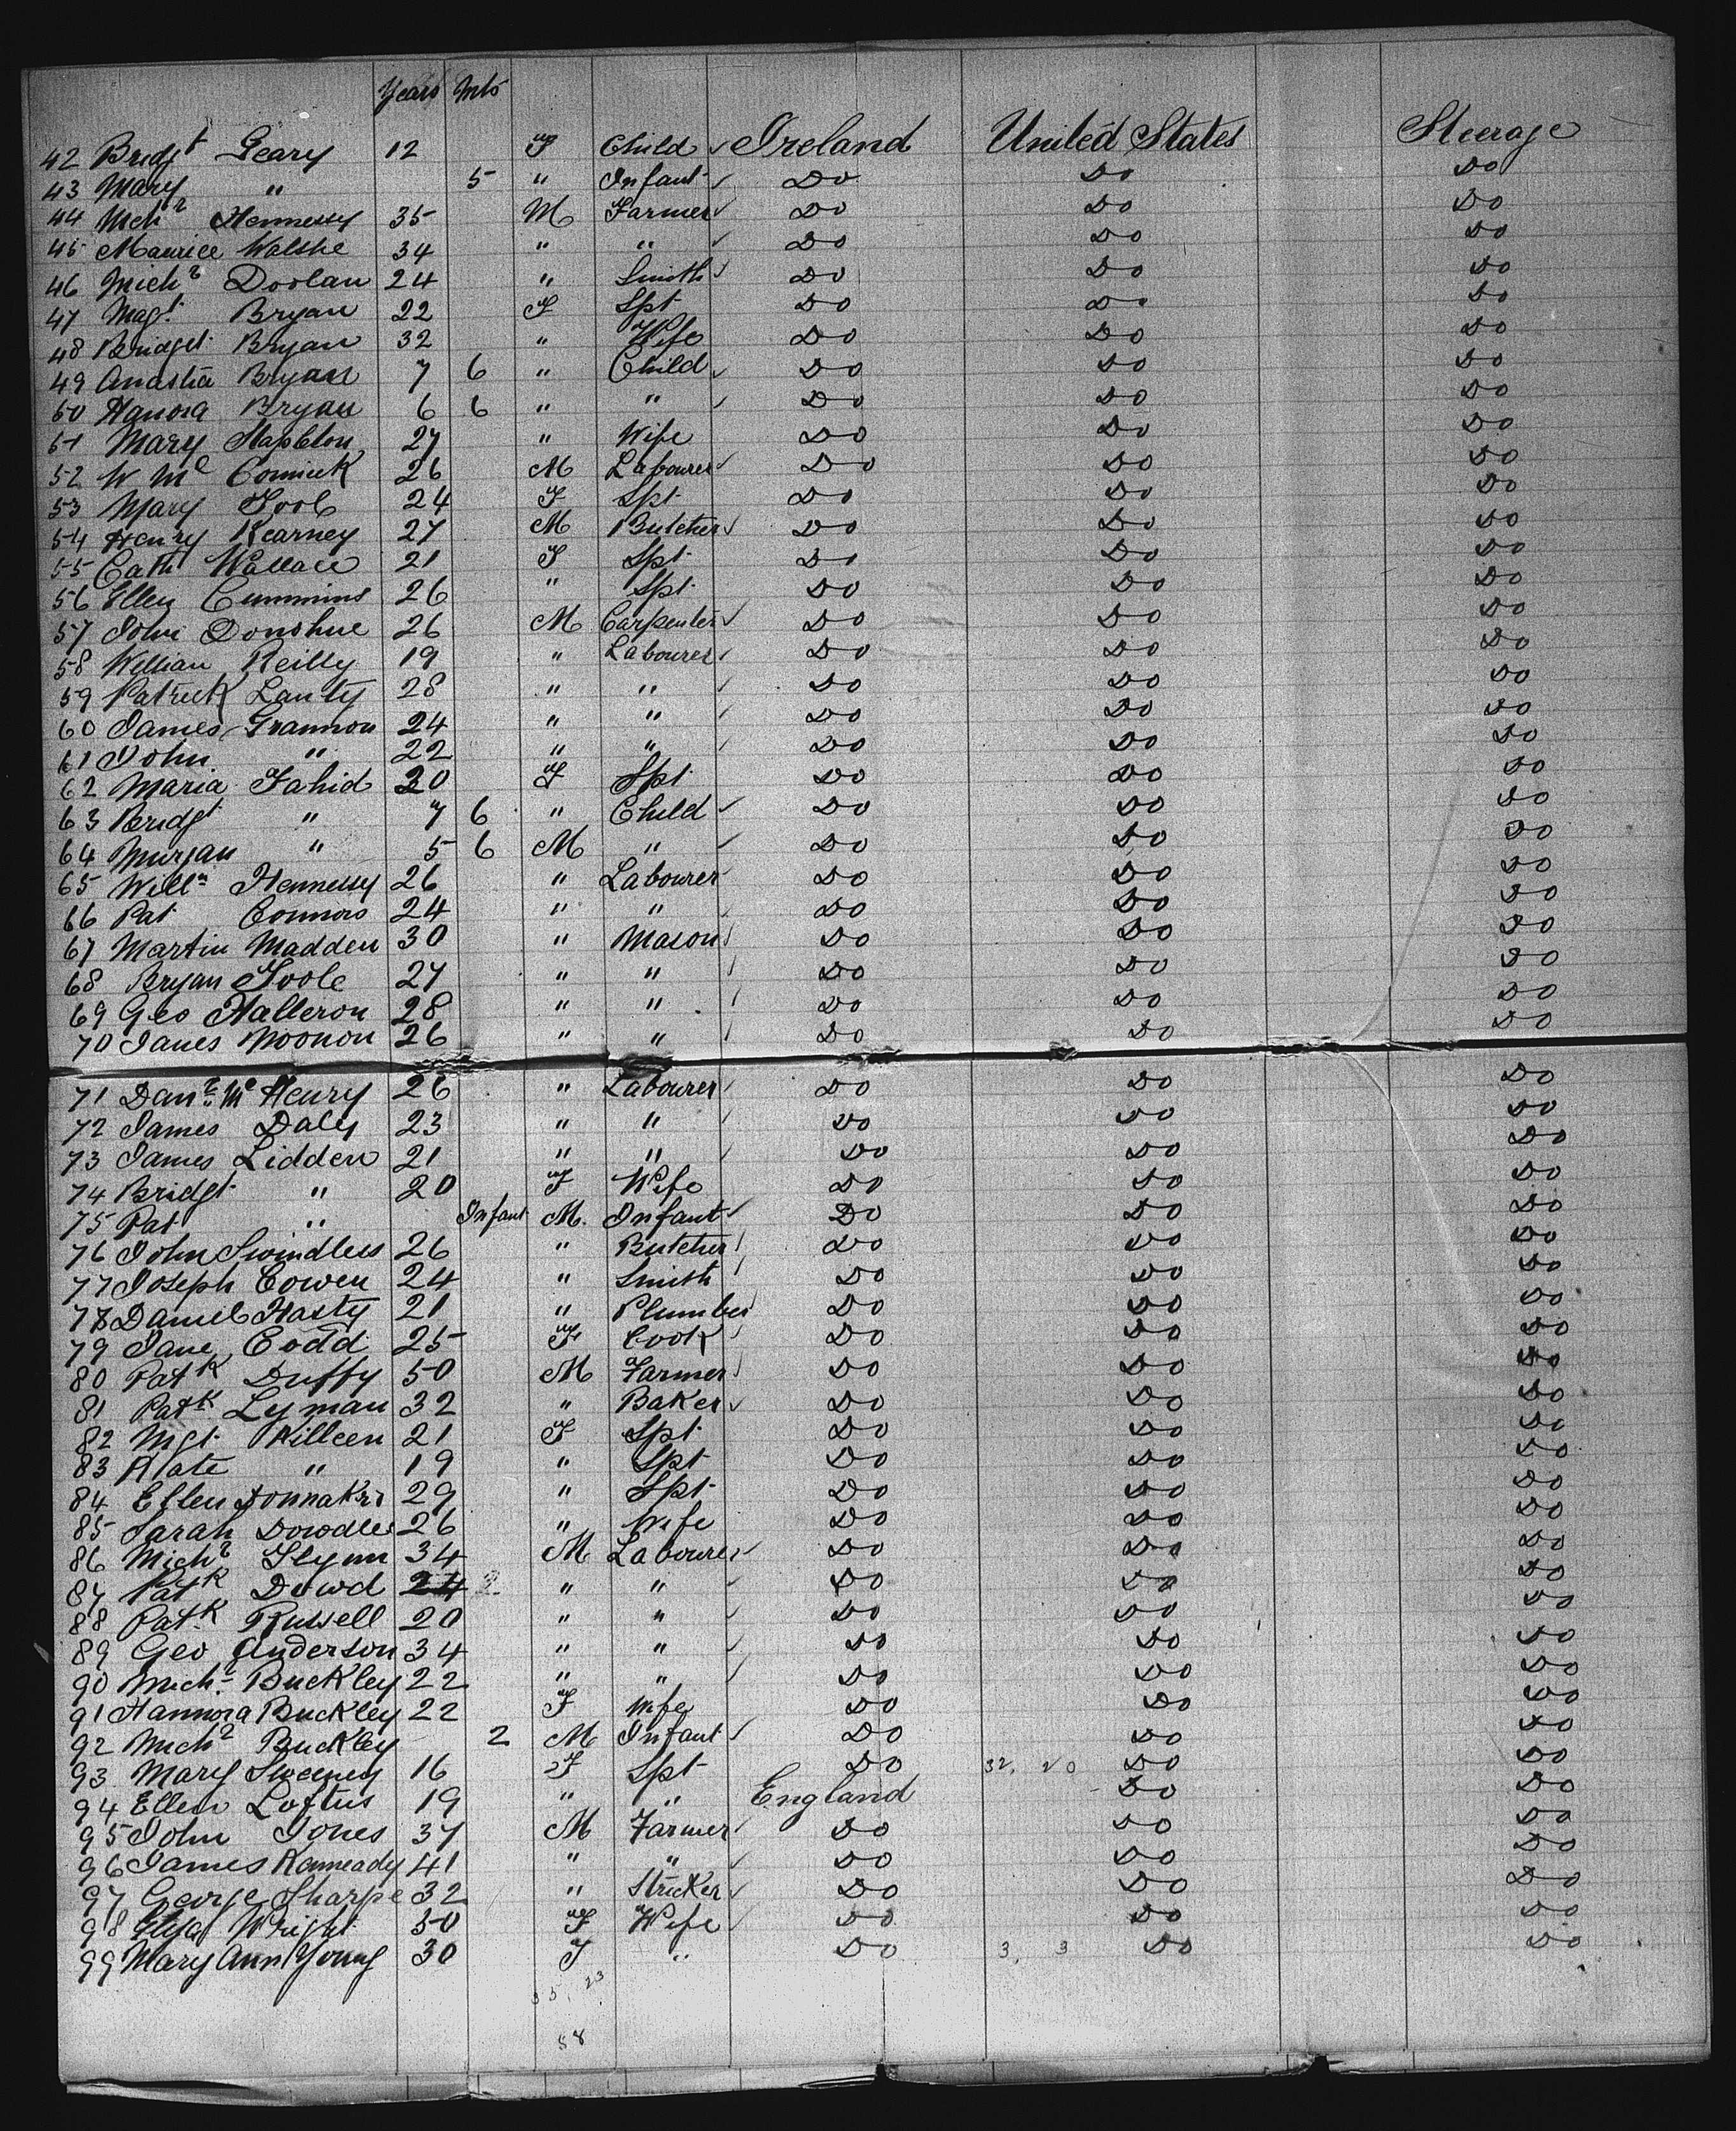 Years Mts
42 Bridgt Geary 12 F Child Ireland United States Steerage
43 Mary " 5 " Infant Do Do Do
44 Michl Hennessy 35 M Farmer Do Do Do
45 Maurice Walshe 34 " " Do Do Do
46 Michl Doolan 24 " Smith Do Do Do
47 Magt Bryan 22 F Spt Do Do Do
48 Bridget Bryan 32 " Wife Do Do Do
49 Anastia Bryan 7 6 " Child Do Do Do
50 Hanora Bryan 6 6 " " Do Do Do
51 Mary Stapleton 27 " Wife Do Do Do
52 W Mc Cormick 26 M Labourer Do Do Do
53 Mary Toole 24 F Spt Do Do Do
54 Henry Kearney 27 M Butcher Do Do Do
55 Cath Wallace 21 F Spt Do Do Do
56 Ellen Cummins 26 " Spt Do Do Do
57 John Donohue 26 M Carpenter Do Do Do
58 William Reilly 19 " Labourer Do Do Do
59 Patrick Lanty 28 " " Do Do Do
60 James Grannon 24 " " Do Do Do
61 John " 22 " " Do Do Do
62 Maria Fahid 20 F Spt Do Do Do
63 Bridgt " 7 6 " Child Do Do Do
64 Murjan " 5 6 M " Do Do Do
65 Willm Hennessy 26 " Labourer Do Do Do
66 Pat Connors 24 " " Do Do Do
67 Martin Madden 30 " Mason Do Do Do
68 Bryan Toole 27 " " Do Do Do
69 Geo Halleron 28 " " Do Do Do
70 James Noonon 26 " " Do Do Do
71 Danl Mc Henry 26 " Labourer Do Do Do
72 James Daley 23 " " Do Do Do
73 James Lidden 21 " " Do Do Do
74 Bridgt " 20 F Wife Do Do Do
75 Pat " Infant M Infant Do Do Do
76 John Swindless 26 " Butcher Do Do Do
77 Joseph Cowen 24 " Smith Do Do Do
78 Daniel Hasty 21 " Plumber Do Do Do
79 Jane Codd 25 F Cook Do Do Do
80 Patk Duffy 50 M Farmer Do Do Do
81 Patk Lyman 32 " Baker Do Do Do
82 Mgt Killeen 21 F Spt Do Do Do
83 Kate " 19 " Spt Do Do Do
84 Ellen 29 " Spt Do Do Do
85 Sarah Dowdle 26 " Wife Do Do Do
86 Michl Flynn 34 M Labourer Do Do Do
87 Patk Dowd 24 " " Do Do Do
88 Patk Russell 20 " " Do Do Do
89 Geo Anderson 34 " " Do Do Do
90 Michl Buckley 22 " " Do Do Do
91 Hannora Buckley 22 F Wife Do Do Do
92 Michl Buckley 2 M Infant Do Do Do
93 Mary Sweeney 16 F Spt Do 32, 20 Do Do
94 Ellen Loftus 19 " " England Do Do
95 John Jones 37 M Farmer Do Do Do
96 James Kenneady 41 " " Do Do Do
97 George Sharpe 32 " Stricker Do Do Do
98 Eliza Wright 50 F Wife Do Do Do
99 Mary Ann Young 30 F " Do 3, 3 Do Do
35, 23
58